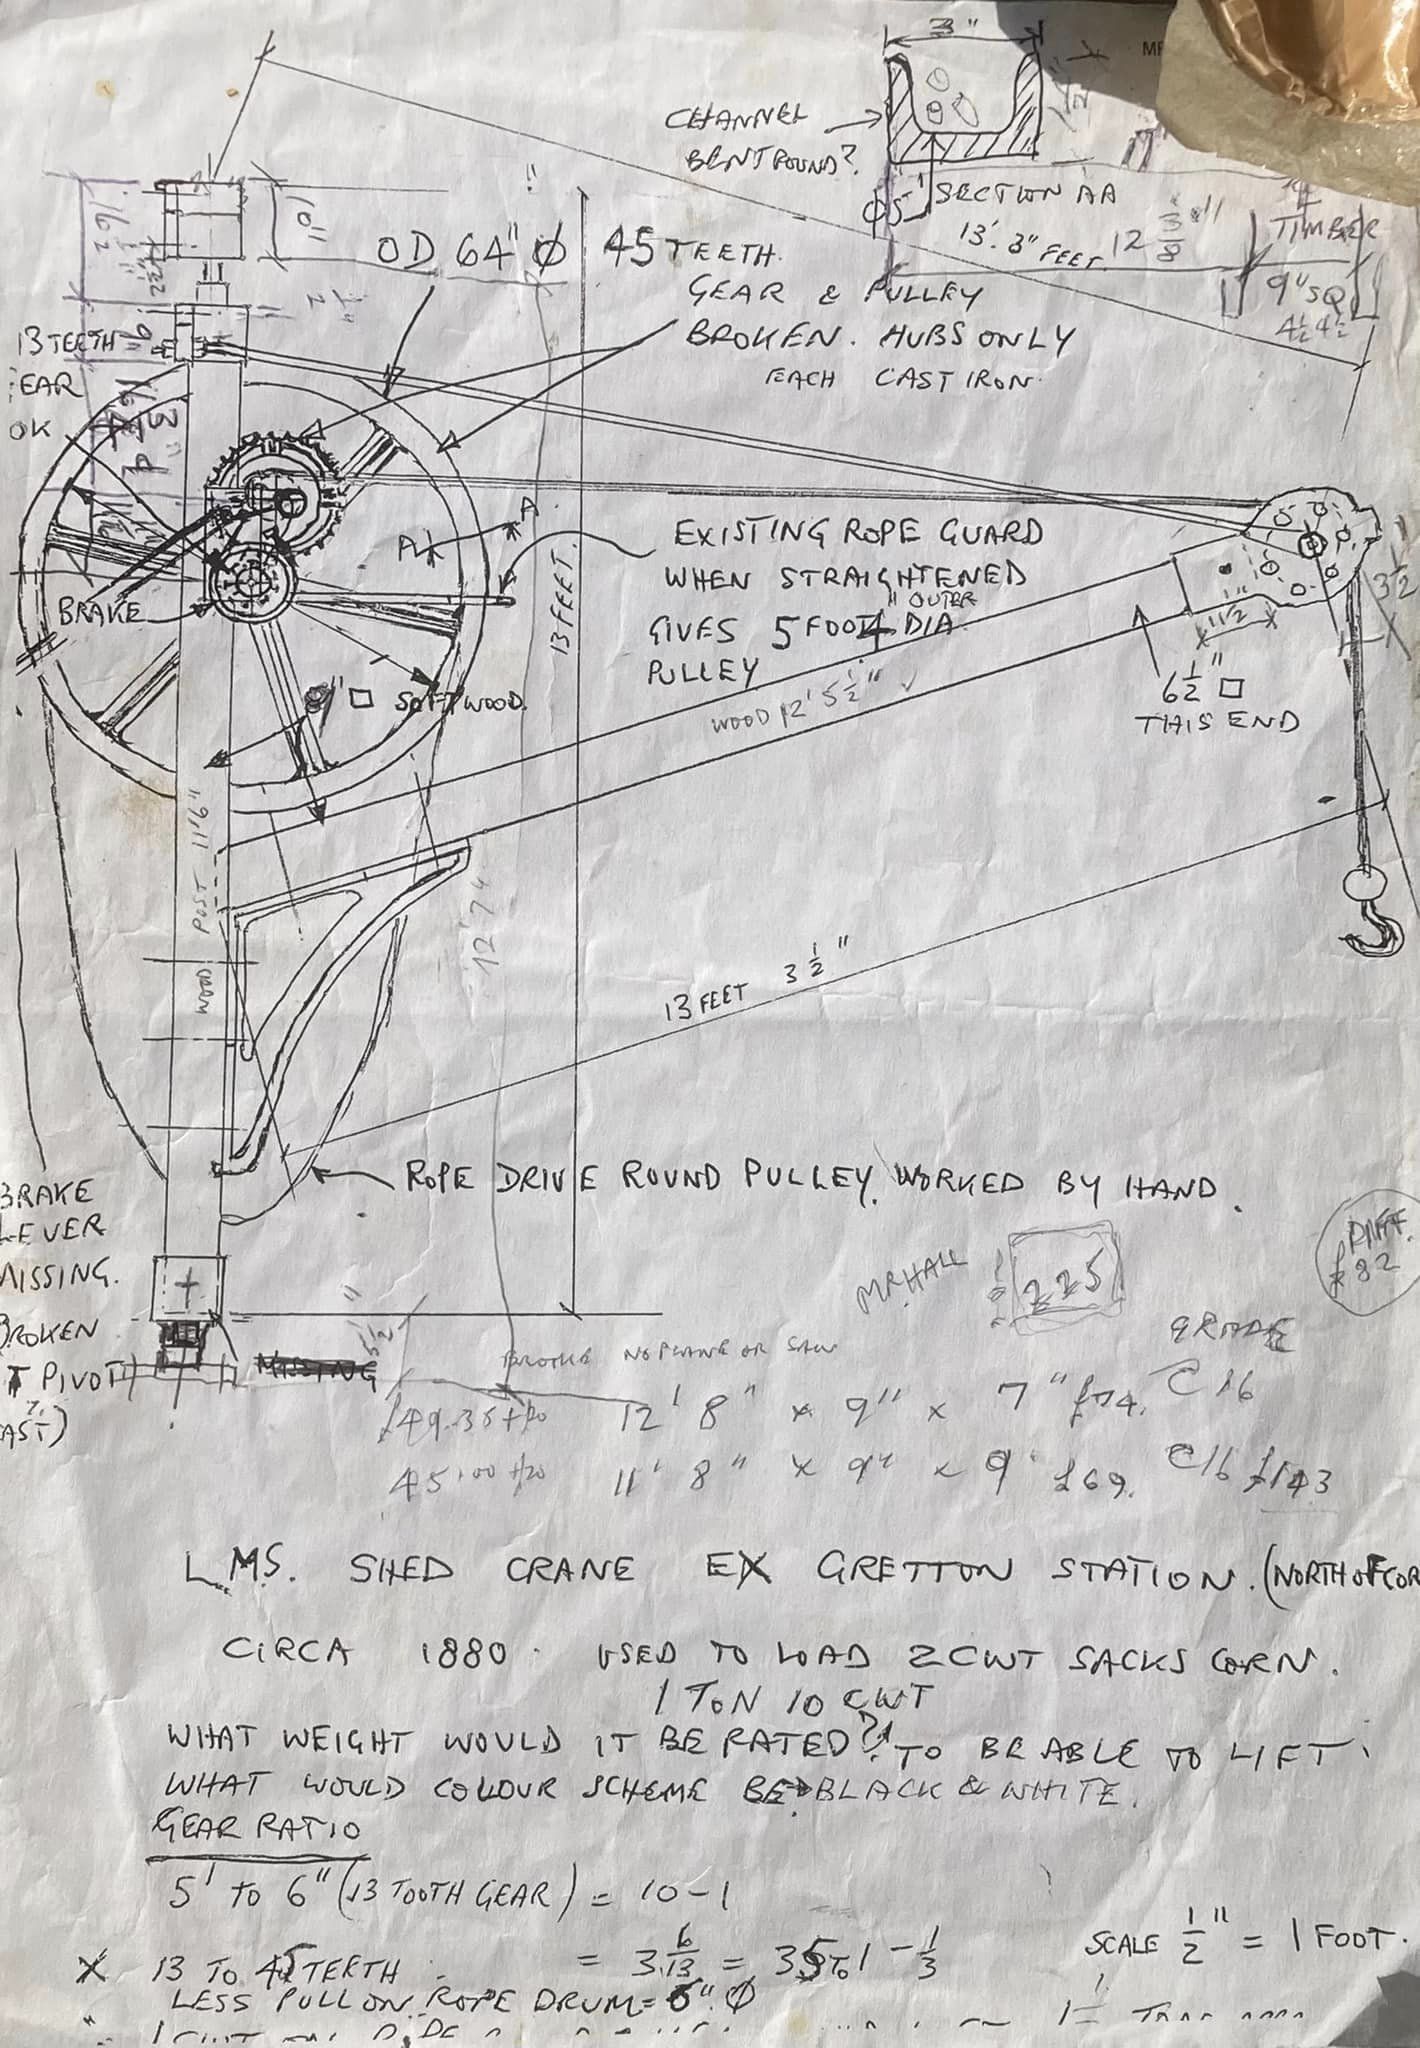 3"
CHANNEL
BENT ROUND?
SECTION AA
13'. 3" FEET 12 3/8"
TIMBER
9" SQ
4½ 4½
10"
OD 64" Ø 45 TEETH.
GEAR & PULLEY
BROKEN. HUBS ONLY
EACH CAST IRON.
13 TEETH
EAR
OK
A
A
EXISTING ROPE GUARD
WHEN STRAIGHTENED
GIVES 5 FOOT 4" OUTER DIA
PULLEY
13 FEET.
BRAKE
9" □ SOFTWOOD.
WOOD 12' 5½" ✓
11½"
3½"
6½" □
THIS END
WOOD POST 11'6"
12'7"
13 FEET 3½"
ROPE DRIVE ROUND PULLEY. WORKED BY HAND.
BRAKE
LEVER
MISSING.
BROKEN
T PIVOT
CAST)
MISSING
5½"
MR HALL
225
DIFF.
£82
GRADE
NO PLANE OR SAW
149.35 + 20 12' 8" x 9" x 7" £74. C16
45.00 + 20 11' 8" x 9" x 9" £69. C16 £143
L.M.S. SHED CRANE EX GRETTON STATION. (NORTH OF COR
CIRCA 1880. USED TO LOAD 2CWT SACKS CORN.
1 TON 10 CWT
WHAT WEIGHT WOULD IT BE RATED? TO BE ABLE TO LIFT.
WHAT WOULD COLOUR SCHEME BE? BLACK & WHITE.
GEAR RATIO
5' TO 6" (13 TOOTH GEAR) = 10-1
SCALE ½" = 1 FOOT.
X 13 TO 45 TEETH = 3 6/13 = 35 TO 1 - 1/3
LESS PULL ON ROPE DRUM = 6" Ø